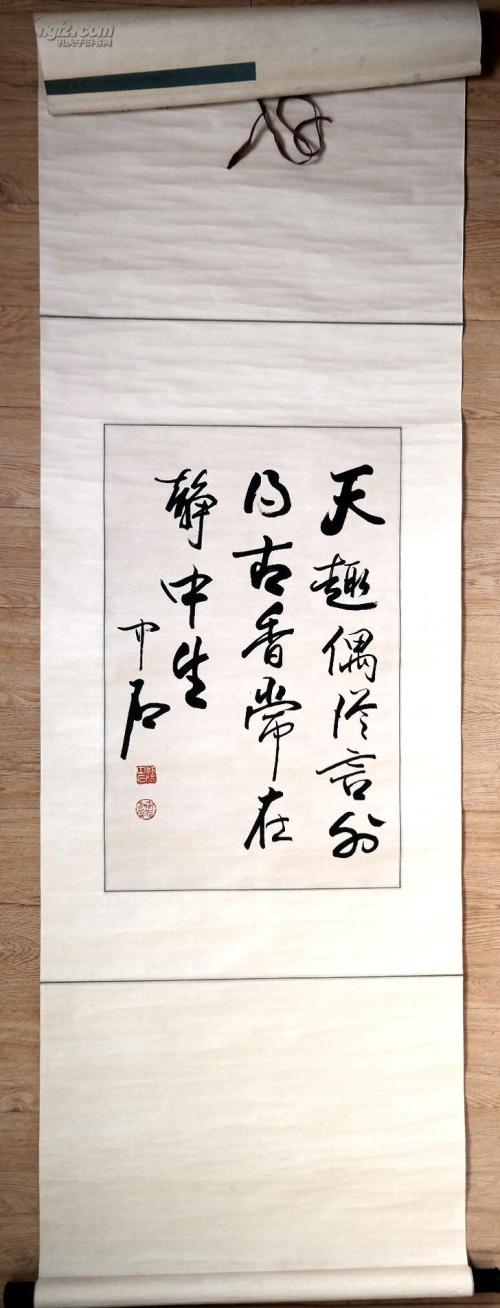 天趣偶從言外
得古香常在
静中生
中石
孔夫子旧书网